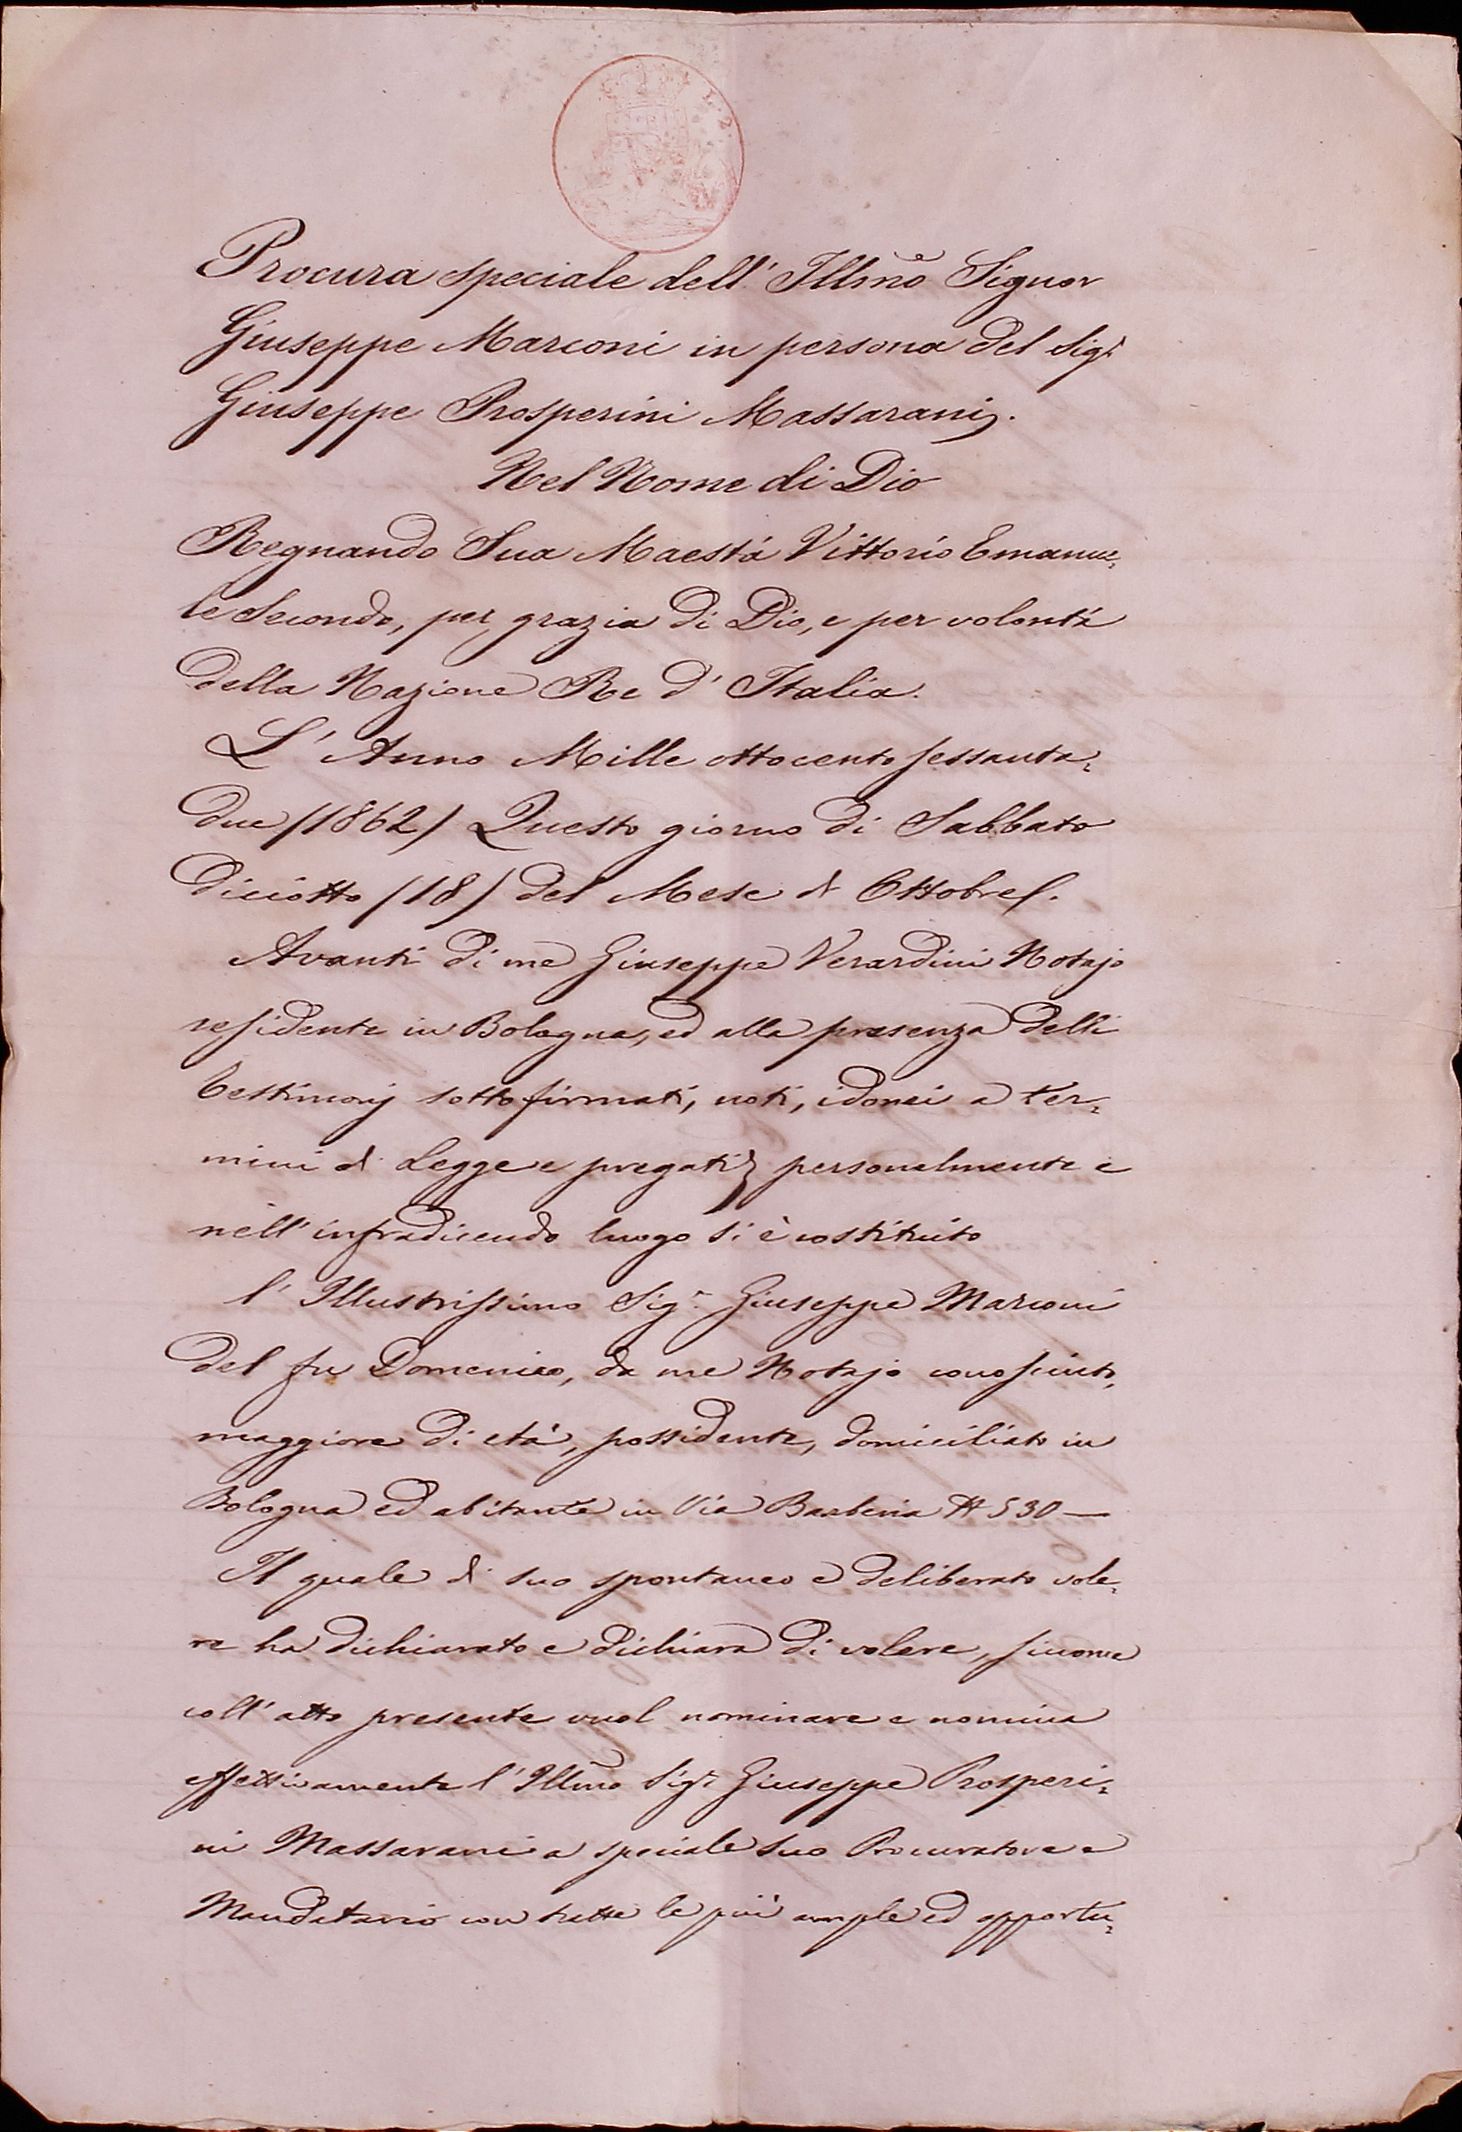 Procura speciale dell' Illmo Signor
Giuseppe Marconi in persona del Sigr
Giuseppe Prosperini Massarani.
Nel Nome di Dio
Regnando Sua Maestà Vittorio Emanue=
le Secondo, per grazia di Dio, e per volontà
della Nazione Re d' Italia.
L' Anno Mille ottocento sessanta=
due /1862/ Questo giorno di Sabbato
dicciotto /18/ del Mese di Ottobre.
Avanti di me Giuseppe Verardini Notajo
residente in Bologna, ed alla presenza delli
testimonj sottofirmati, noti, idonei a ter=
mini di Legge e pregati, personalmente e
nell' infradicendo luogo si è costituito
l' Illustrissimo Sigr Giuseppe Marconi
del fu Domenico, da me Notajo conosciuto,
maggiore di età, possidente, domiciliato in
Bologna ed abitante in Via Barberia N 530 —
Il quale di suo spontaneo e deliberato vole=
re ha dichiarato e dichiara di volere, siccome
coll' atto presente vuol nominare e nomina
effettivamente l' Illmo Sigr Giuseppe Prosperi=
ni Massarani a speciale suo Procuratore e
Mandatario con tutte le più ample ed opportu=